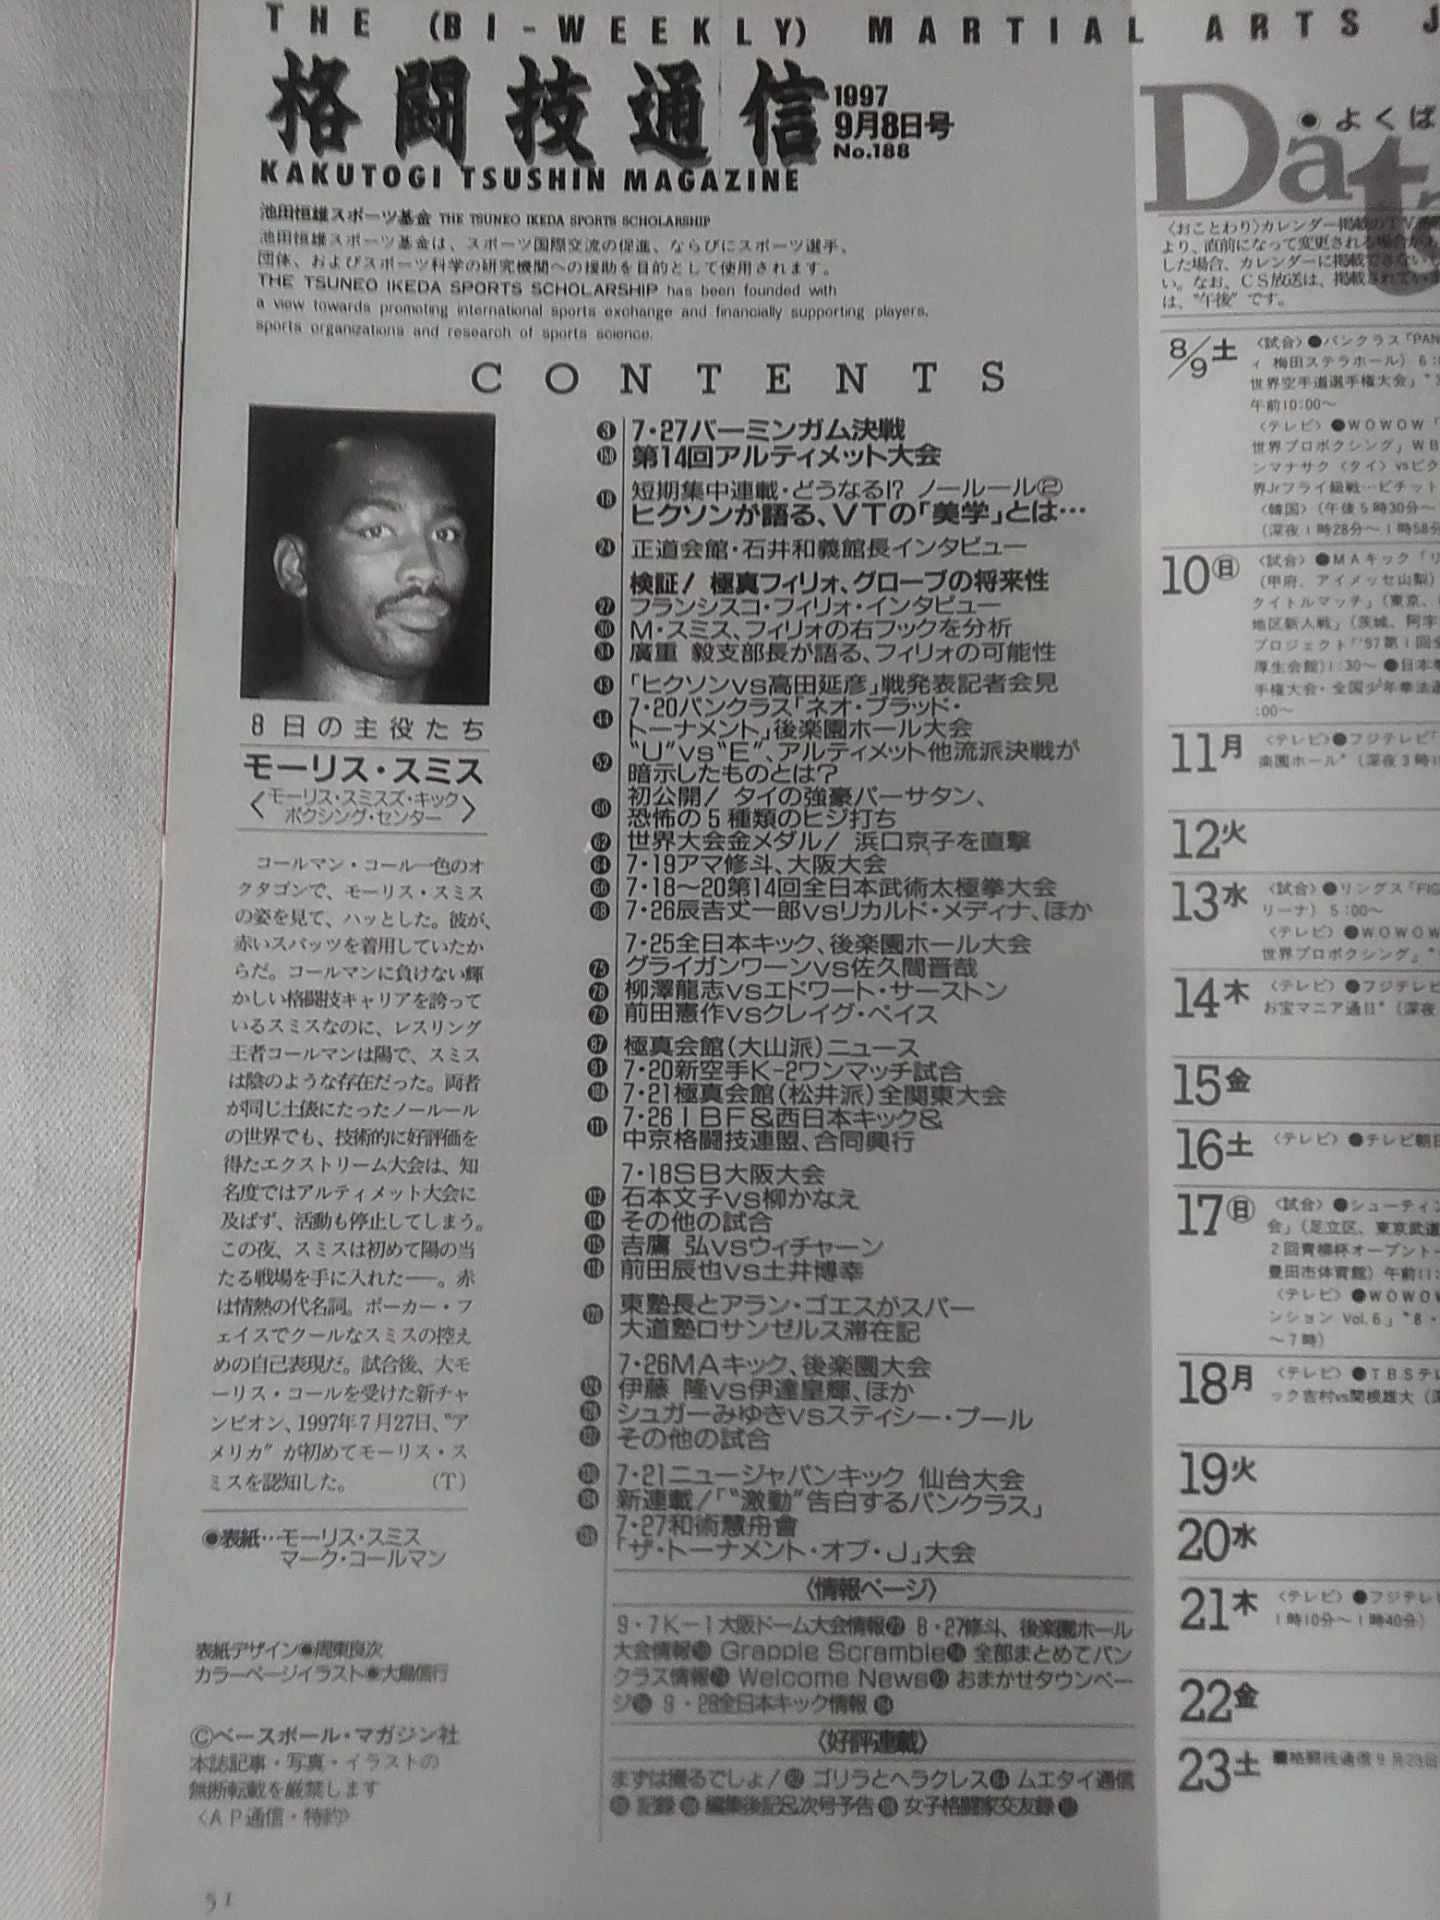 THE (BI-WEEKLY) MARTIAL ARTS J
格闘技通信
1997
9月8日号
No.188
KAKUTOGI TSUSHIN MAGAZINE
池田恒雄スポーツ基金 THE TSUNEO IKEDA SPORTS SCHOLARSHIP
池田恒雄スポーツ基金は、スポーツ国際交流の促進、ならびにスポーツ選手、
団体、およびスポーツ科学の研究機関への援助を目的として使用されます。
THE TSUNEO IKEDA SPORTS SCHOLARSHIP has been founded with
a view towards promoting international sports exchange and financially supporting players,
sports organizations and research of sports science.
CONTENTS
8日の主役たち
モーリス・スミス
〈モーリス・スミスズ・キック
ボクシング・センター〉
コールマン・コール一色のオ
クタゴンで、モーリス・スミス
の姿を見て、ハッとした。彼が、
赤いスパッツを着用していたか
らだ。コールマンに負けない輝
かしい格闘技キャリアを誇って
いるスミスなのに、レスリング
王者コールマンは陽で、スミス
は陰のような存在だった。両者
が同じ土俵にたったノールール
の世界でも、技術的に好評価を
得たエクストリーム大会は、知
名度ではアルティメット大会に
及ばず、活動も停止してしまう。
この夜、スミスは初めて陽の当
たる戦場を手に入れた──。赤
は情熱の代名詞。ポーカー・フ
ェイスでクールなスミスの控え
めの自己表現だ。試合後、大モ
ーリス・コールを受けた新チャ
ンピオン、1997年7月27日、“ア
メリカ”が初めてモーリス・ス
ミスを認知した。 (T)
●表紙…モーリス・スミス
マーク・コールマン
表紙デザイン●周東良次
カラーページイラスト●大島信行
©ベースボール・マガジン社
本誌記事・写真・イラストの
無断転載を厳禁します
〈AP通信・特約〉
51
3 7・27バーミンガム決戦
150 第14回アルティメット大会
18 短期集中連載・どうなる!? ノールール②
ヒクソンが語る、VTの「美学」とは…
24 正道会館・石井和義館長インタビュー
検証! 極真フィリォ、グローブの将来性
27 フランシスコ・フィリォ・インタビュー
30 M・スミス、フィリォの右フックを分析
34 廣重 毅支部長が語る、フィリォの可能性
43 「ヒクソンvs高田延彦」戦発表記者会見
44 7・20パンクラス「ネオ・ブラッド・
トーナメント」後楽園ホール大会
52 “U”vs“E”、アルティメット他流派決戦が
暗示したものとは?
60 初公開! タイの強豪パーサタン、
恐怖の5種類のヒジ打ち
62 世界大会金メダル! 浜口京子を直撃
64 7・19アマ修斗、大阪大会
66 7・18〜20第14回全日本武術太極拳大会
68 7・26辰吉丈一郎vsリカルド・メディナ、ほか
7・25全日本キック、後楽園ホール大会
75 グライガンワーンvs佐久間晋哉
78 柳澤龍志vsエドワート・サーストン
79 前田憲作vsクレイグ・ペイス
87 極真会館(大山派)ニュース
91 7・20新空手K-2ワンマッチ試合
108 7・21極真会館(松井派)全関東大会
111 7・26IBF&西日本キック&
中京格闘技連盟、合同興行
7・18SB大阪大会
112 石本文子vs柳かなえ
114 その他の試合
115 吉鷹 弘vsウィチャーン
前田辰也vs土井博幸
120 東塾長とアラン・ゴエスがスパー
大道塾ロサンゼルス滞在記
7・26MAキック、後楽園大会
124 伊藤 隆vs伊達皇輝、ほか
シュガーみゆきvsスティシー・プール
その他の試合
7・21ニュージャパンキック 仙台大会
新連載!「“激動”告白するパンクラス」
7・27和術慧舟會
「ザ・トーナメント・オブ・J」大会
〈情報ページ〉
9・7K-1大阪ドーム大会情報 8・27修斗、後楽園ホール
大会情報 Grapple Scramble 全部まとめてパン
クラス情報 Welcome News おまかせタウンペー
ジ 9・28全日本キック情報
〈好評連載〉
まずは撮るでしょ! ゴリラとヘラクレス ムエタイ通信
記録 編集後記&次号予告 女子格闘家交友録
●よくば
Data
〈おことわり〉カレンダー掲載のTV
より、直前になって変更される場合があ
した場合、カレンダーに掲載できない
い。なお、CS放送は、掲載されてい
は、“午後”です。
8/9土 〈試合〉●パンクラス「PAN
ィ 梅田ステラホール) 6:
世界空手道選手権大会」
午前10:00〜
〈テレビ〉●WOWOW「
世界プロボクシング」WB
ンマナサク〈タイ〉vsピク
界Jrフライ級戦…ピチット
〈韓国〉(午後5時30分〜
(深夜1時28分〜1時58分
10日 〈試合〉●MAキック「リ
(甲府、アイメッセ山梨)
タイトルマッチ」(東京、
地区新人戦」(茨城、阿字
プロジェクト「'97第1回全
厚生会館)1:30〜 ●日本拳
手権大会・全国少年拳法選
:00〜
11月 〈テレビ〉●フジテレビ「
楽園ホール”(深夜3時1
12火
13水 〈試合〉●リングス「FIG
リーナ) 5:00〜
〈テレビ〉●WOWOW
世界プロボクシング」
14木 〈テレビ〉●フジテレビ
お宝マニア通II”(深夜
15金
16土 〈テレビ〉●テレビ朝日
17日 〈試合〉●シューティン
会」(足立区、東京武道
2回青柳杯オープントー
豊田市体育館)午前11:
〈テレビ〉●WOWOW
ンション Vol.6」“8・
〜7時)
18月 〈テレビ〉●TBSテレ
ック吉村vs関根雄大(深
19火
20水
21木 〈テレビ〉●フジテレビ
1時10分〜1時40分)
22金
23土 ■格闘技通信9月23日